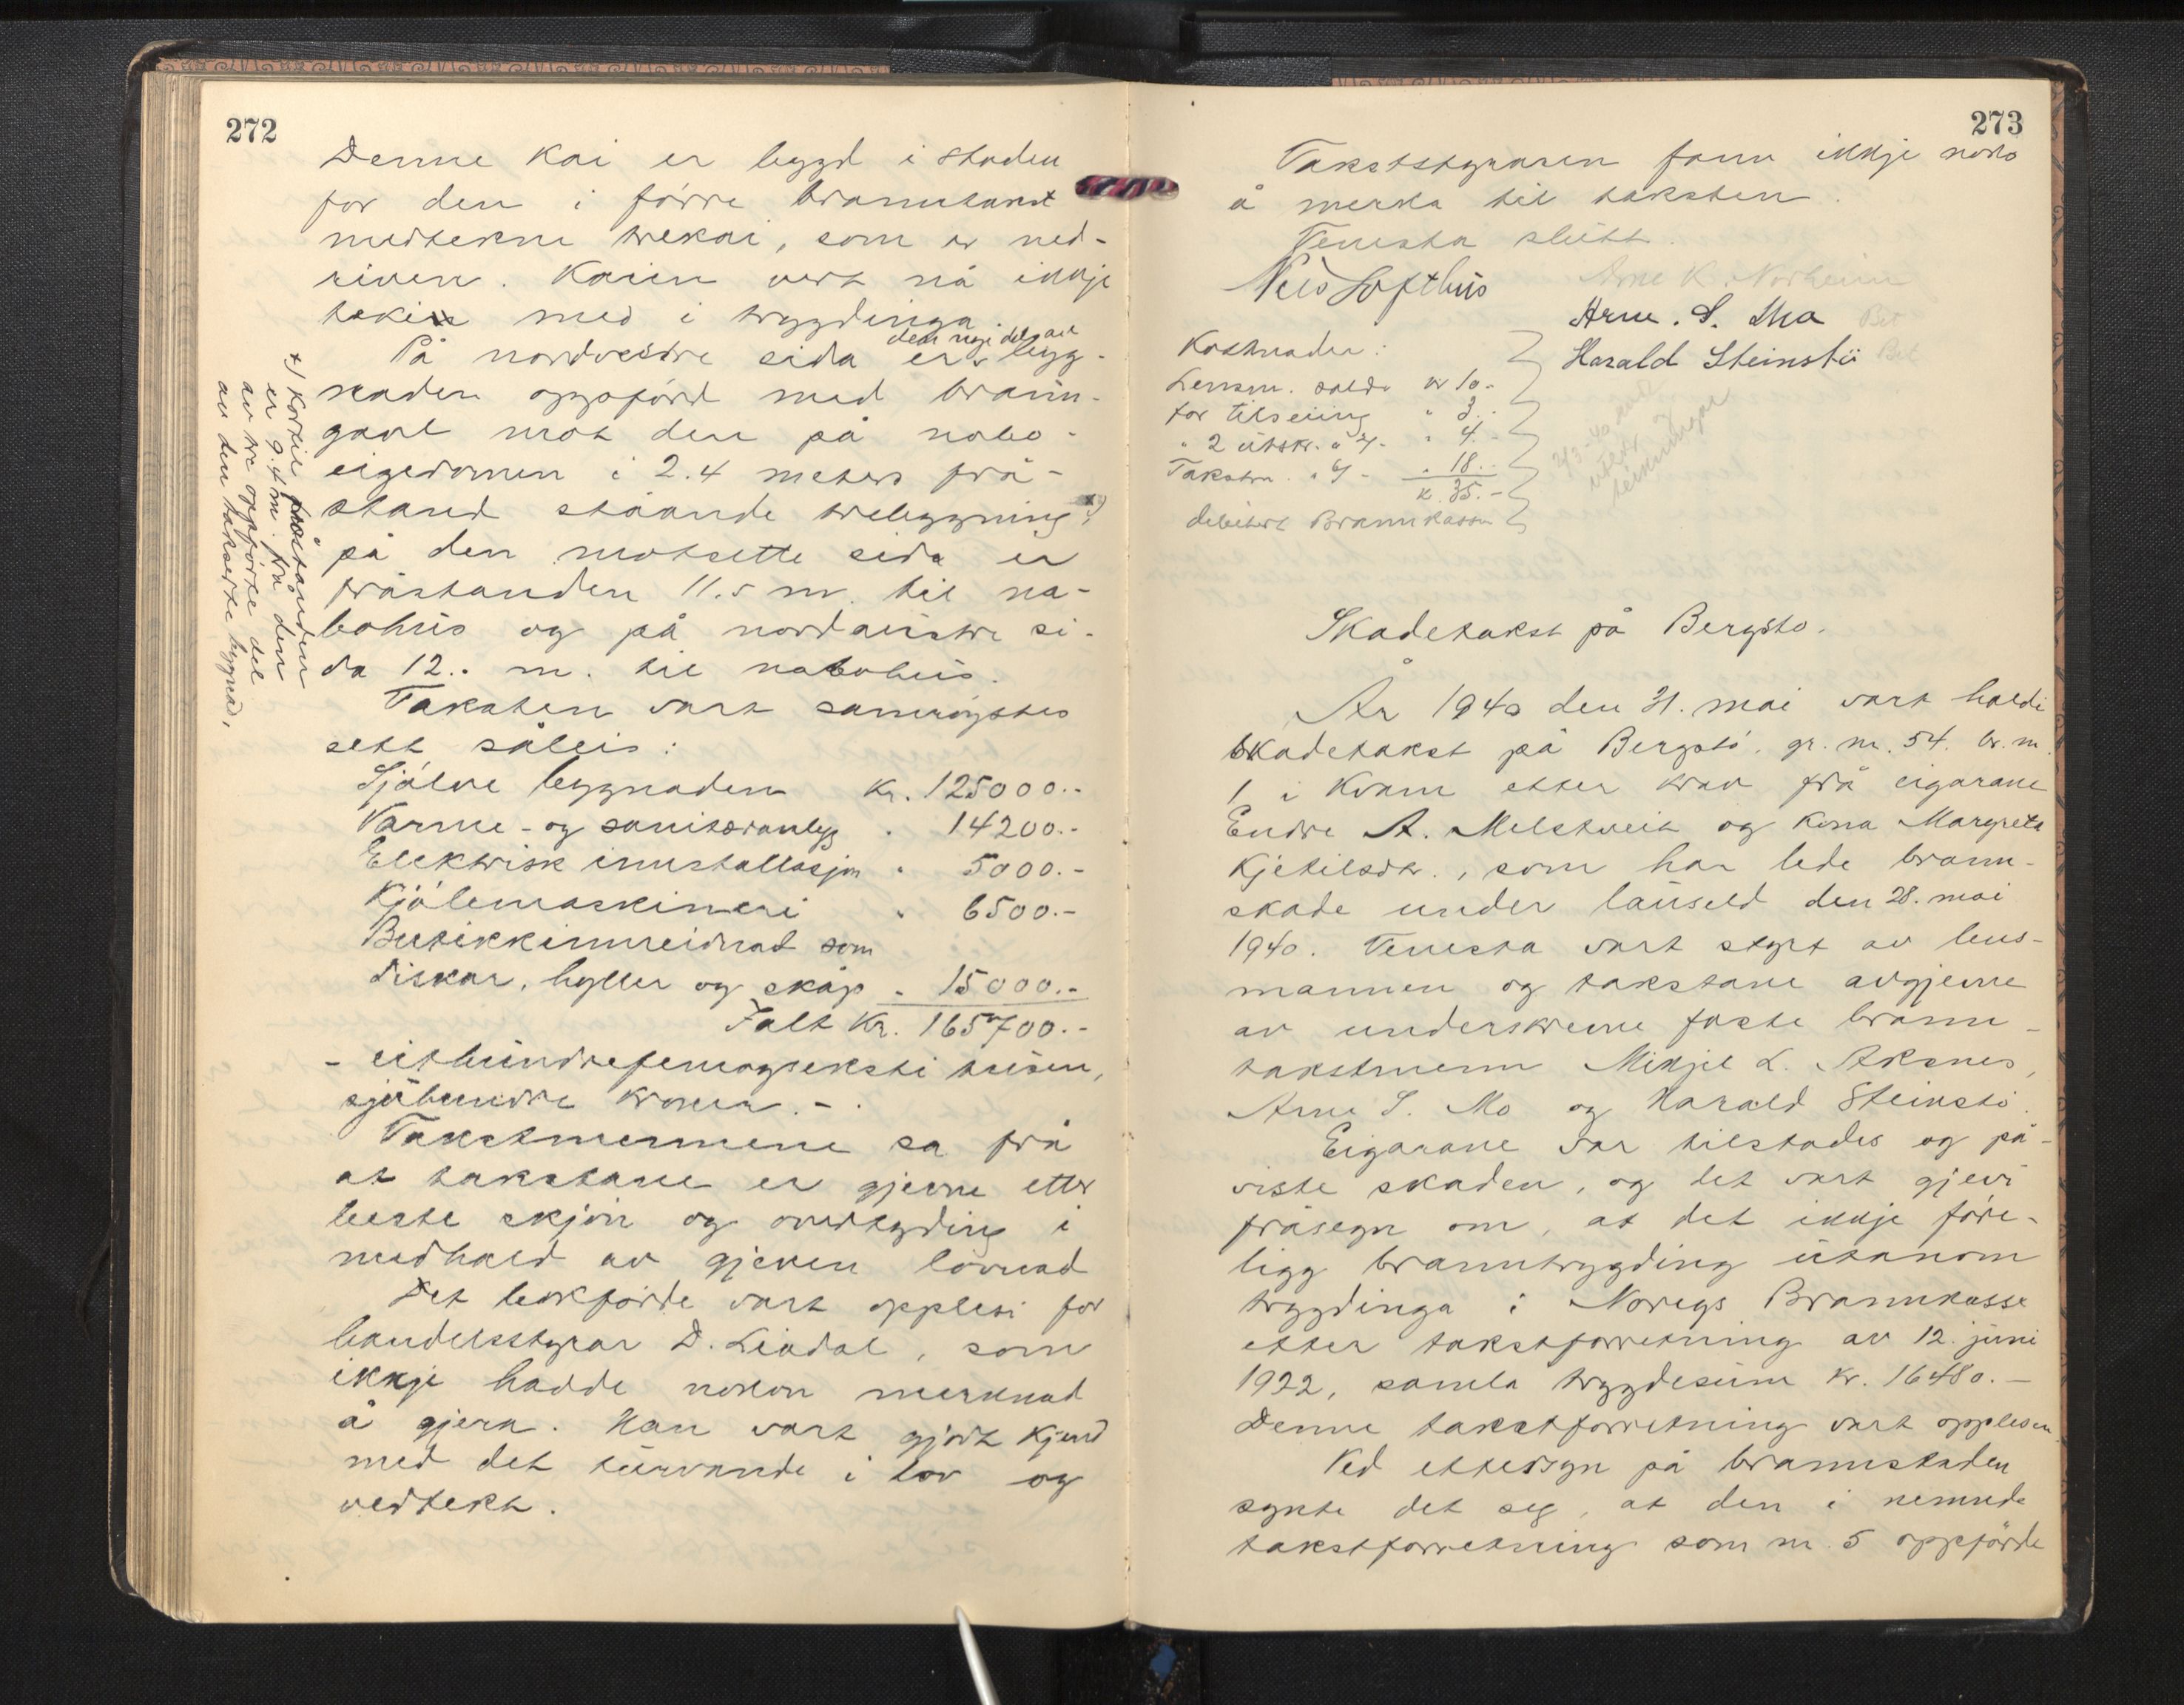 272
Denne kai er bygd i staden
for den i förre branntakst
medtekne trekai, som er ned-
riven. Kaien vert nå ikkje
teki med i trygdinga.
den nye del av
På nordvestre sida er bygg-
naden oppförd med brann-
gavl mot den på nabo-
eigedomen i 2.4 meters frå-
stand ståande trebygning x)
på den motsette sida er
fråstanden 11.5 m. til na-
bohus og på nordaustre si-
da 12.. m. til nabohus.
Taksten vart samröystes
sett såleis:
Sjölve bygnaden Kr. 125000.-
Varme- og sanitæranlegg " 14200.-
Elektrisk innstallasjon " 5000.-
Kjölemaskineri " 6500.-
Butikkinnreidnad som
diskar, hyller og skåp " 15000.-
Ialt Kr. 165700.-
- eithundrefemogseksti tusen,
sjuhundre kroner.-.
Takstmennene sa frå
at takstane er gjevne etter
beste skjön og overtyding i
medhald av gjeven lovnad
Det bokförde vart opplesi for
handelsstyrar D. Liadal, som
ikkje hadde nokon merknad
å gjera. Han vart gjort kjend
med det turvande i lov og
vedtekt.
x) fråstanden
er 9.4 m. frå den
av tre oppförte del
av den takserte bygnad,
273
Takststyraren fann ikkje noko
å merka til taksten.
Tenesta slutt.
Nils Lofthus Arne K. Norheim
Arne. S. Mo Bet
Harald Steinstö Bet
Kostnader:
Lensm. kr 10.-
for tilseiing " 3.-
" 2 utskr. " 2/- " 4.-
Takstm. " 6/- " 18.-
k. 35.-
debitert Brannkassa
Skadetakst på Bergstö.
År 1940 den 31. mai vart haldi
skadetakst på Bergstö, gr. nr. 54. br. nr.
1 i Kvam etter krav frå eigarane
Endre A. Melstveit og kona Margreta
Kjetilsdtr., som har lede brann-
skade under lauseld den 28. mai
1940. Tenesta vart styrt av lens-
mannen og takstane avgjevne
av underskrevne faste brann-
takstmenn Mikjel L. Aksnes,
Arne S. Mo og Harald Steinstö.
Eigarane var tilstades og på-
viste skaden, og det vart gjevi
fråsegn om, at det ikkje före-
ligg branntrygding utanom
trygdinga i Noregs Brannkasse
etter takstforretning av 12. juni
1922, samla trygdesum kr. 16480.-
Denne takstforretning vart opplesen.
Ved ettersyn på brannstaden
synte det seg, at den i nemnde
takstforretning som nr. 5 oppförde